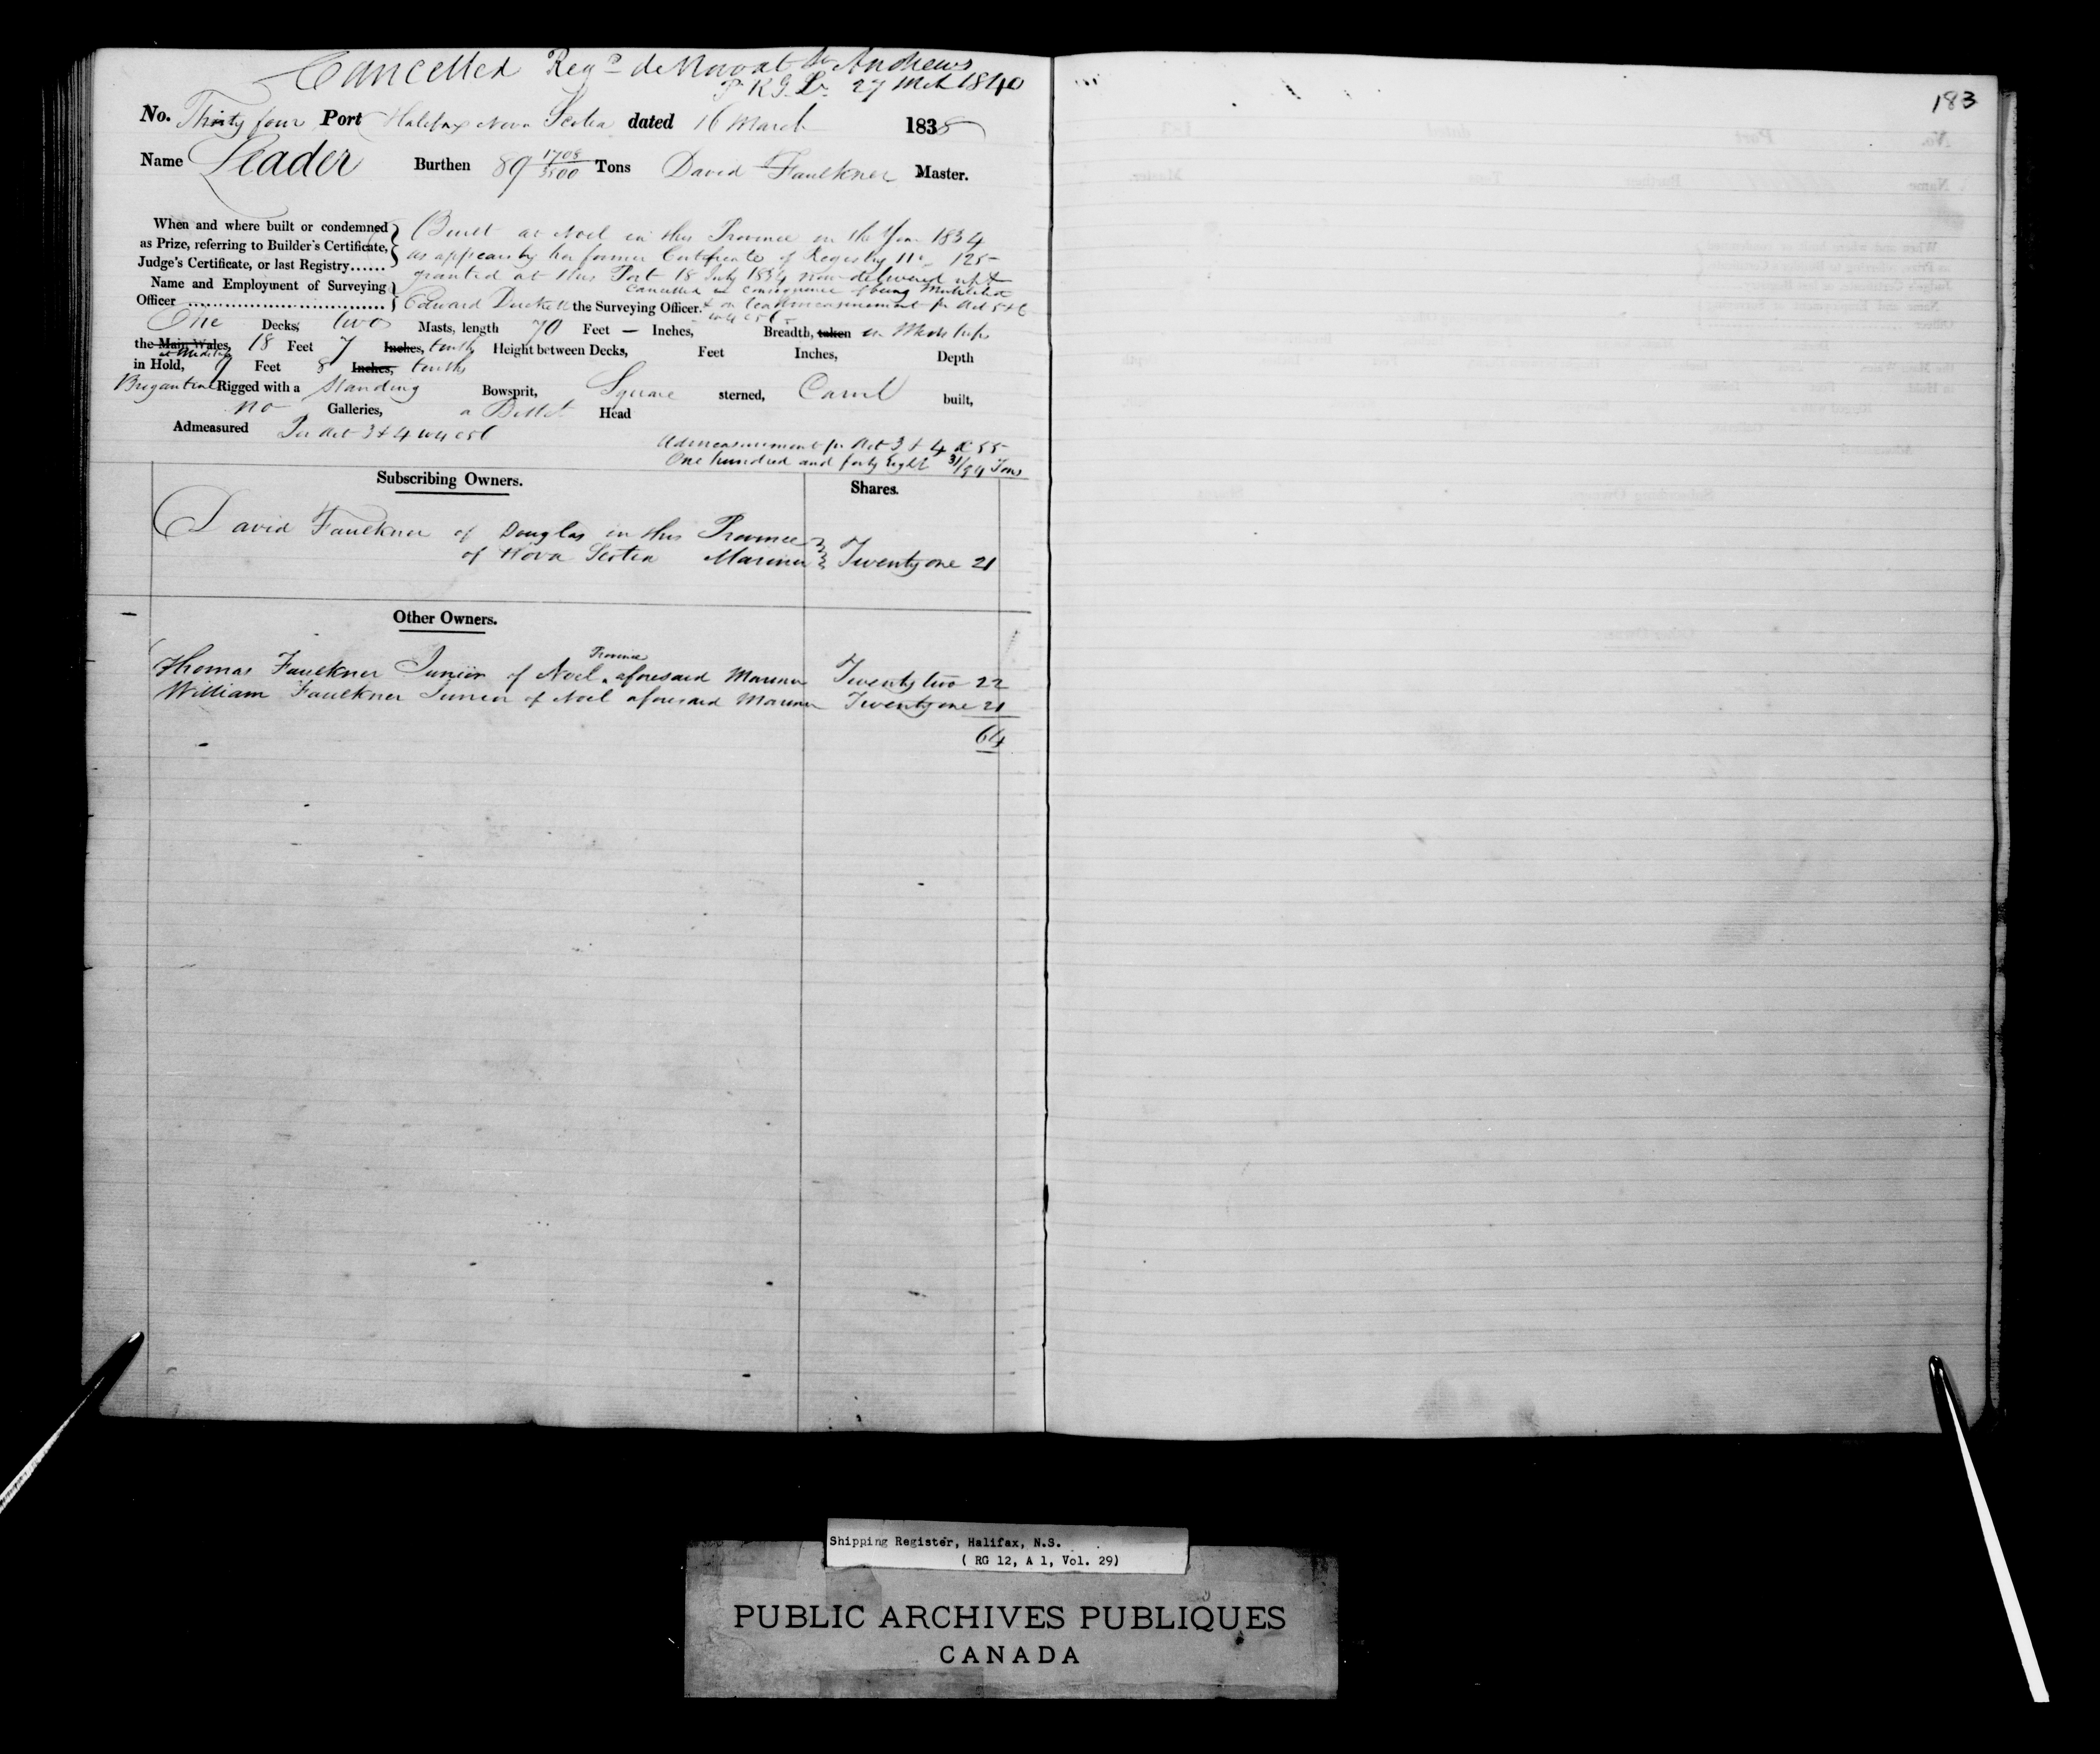 Cancelled Regd de Novo at St Andrews
27 Mch 1840
183
No. Thirty four Port Halifax Nova Scotia dated 16 March 1838
Name Leader Burthen 89 1708/3500 Tons David Faulkner Master.
When and where built or condemned as Prize, referring to Builder's Certificate, Judge's Certificate, or last Registry......
Built at Noel in this Province in the Year 1834
as appears by her former Certificate of Registry No 125
granted at this Port 18 July 1834 now delivered up &
Cancelled in consequence of being Mutilated
Name and Employment of Surveying Officer
Edward Duckett the Surveying Officer. & on readmeasurement pr Act 5 & 6
W 4 C 56
One Decks, two Masts, length 70 Feet — Inches, Breadth, taken in Midships
the Main Wales, 18 Feet 7 Inches, tenths Height between Decks, Feet Inches, Depth
at Midships
in Hold, 9 Feet 8 Inches, tenths
Brigantine Rigged with a Standing Bowsprit, Square sterned, Carvel built,
no Galleries, a Billet Head
Admeasured Per Act 3 & 4 W 4 C 56
Admeasurement pr Act 3 & 4 C 55
One hundred and forty Eight 31/94 Tons
Subscribing Owners. Shares.
David Faulkner of Douglas in this Province
of Nova Scotia Mariner Twenty one 21
Other Owners.
Province
Thomas Faulkner Junior of Noel aforesaid Mariner Twenty two 22
William Faulkner Junior of Noel aforesaid Mariner Twenty one 21
64
Shipping Register, Halifax, N.S.
( RG 12, A 1, Vol. 29)
PUBLIC ARCHIVES PUBLIQUES
CANADA